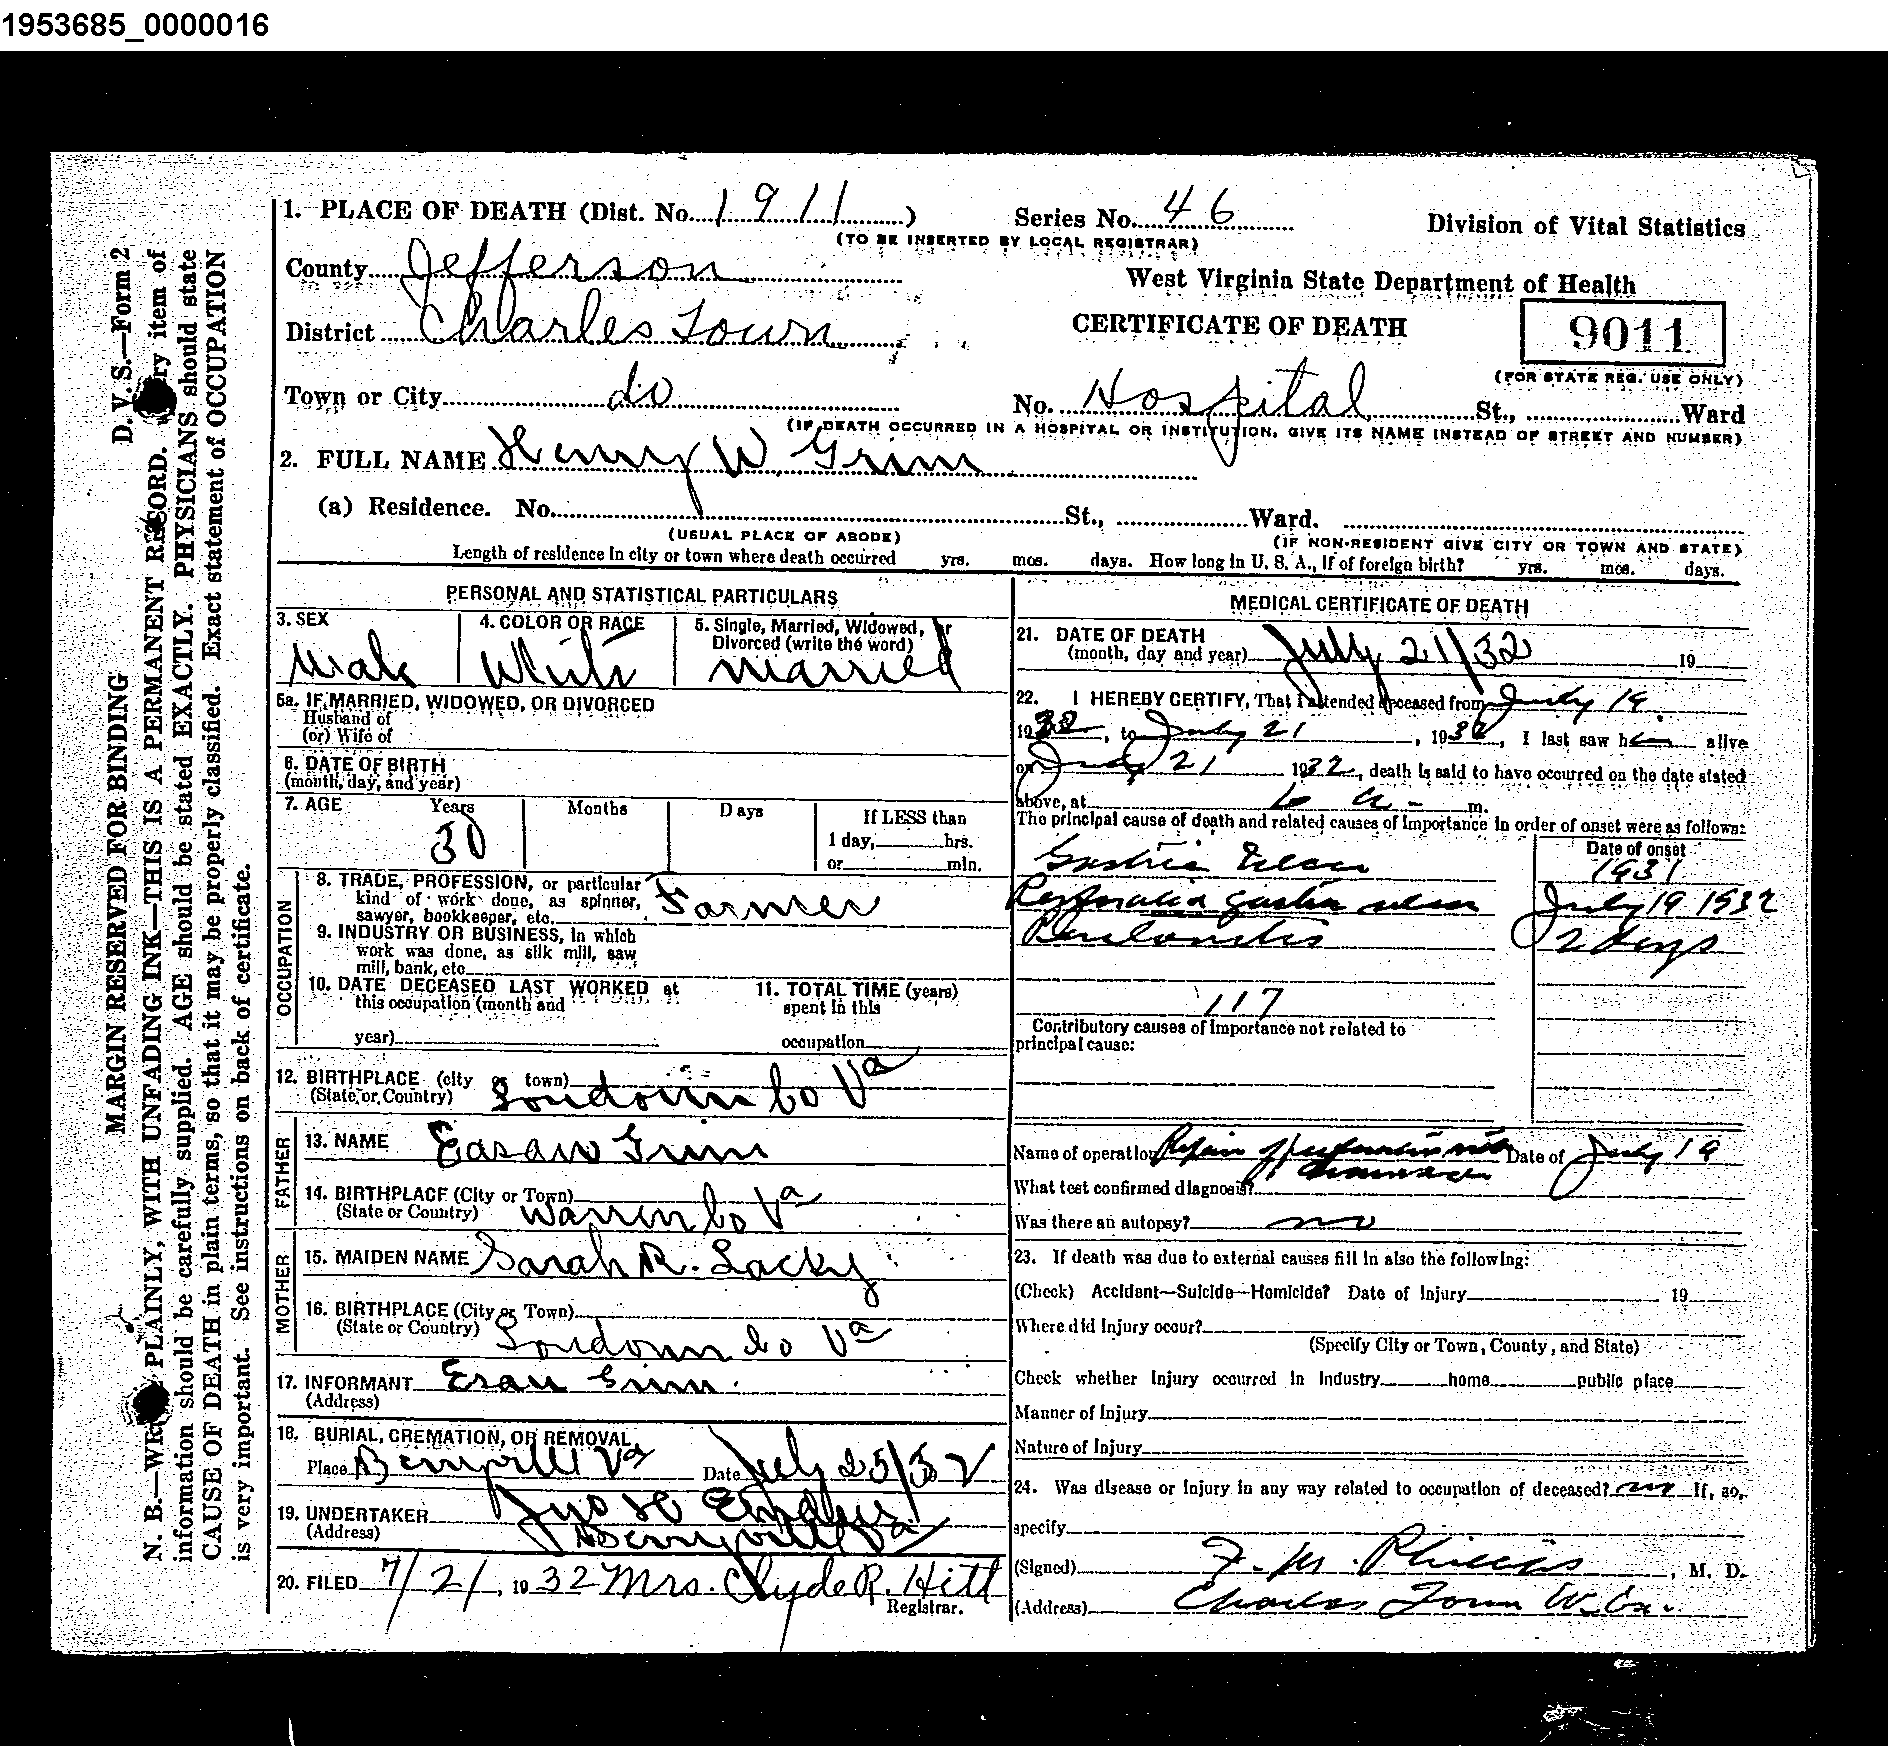 1953685_0000016
1. PLACE OF DEATH (Dist. No. 1911)
Series No. 46
Division of Vital Statistics
(TO BE INSERTED BY LOCAL REGISTRAR)
County Jefferson
West Virginia State Department of Health
District Charles Town
CERTIFICATE OF DEATH
9011
(FOR STATE REG. USE ONLY)
Town or City do
No. Hospital St., Ward
(IF DEATH OCCURRED IN A HOSPITAL OR INSTITUTION, GIVE ITS NAME INSTEAD OF STREET AND NUMBER)
2. FULL NAME Henry W. Grim
(a) Residence. No. St., Ward.
(USUAL PLACE OF ABODE)
(IF NON-RESIDENT GIVE CITY OR TOWN AND STATE)
Length of residence in city or town where death occurred yrs. mos. days. How long in U. S. A., if of foreign birth? yrs. mos. days.
PERSONAL AND STATISTICAL PARTICULARS
3. SEX
4. COLOR OR RACE
5. Single, Married, Widowed, or
Divorced (write the word)
Male
White
married
5a. IF MARRIED, WIDOWED, OR DIVORCED
Husband of
(or) Wife of
6. DATE OF BIRTH
(month, day, and year)
7. AGE Years Months Days If LESS than
30
1 day, hrs.
or min.
OCCUPATION
8. TRADE, PROFESSION, or particular
kind of work done, as spinner,
sawyer, bookkeeper, etc. Farmer
9. INDUSTRY OR BUSINESS, in which
work was done, as silk mill, saw
mill, bank, etc.
10. DATE DECEASED LAST WORKED at
this occupation (month and
year)
11. TOTAL TIME (years)
spent in this
occupation
12. BIRTHPLACE (city or town)
(State or Country) Loudoun Co Va
FATHER
13. NAME Easaw Grim
14. BIRTHPLACE (City or Town)
(State or Country) Warren Co Va
MOTHER
15. MAIDEN NAME Sarah R. Lacky
16. BIRTHPLACE (City or Town)
(State or Country) Loudoun Co Va
17. INFORMANT Esau Grim
(Address)
18. BURIAL, CREMATION, OR REMOVAL
Place Berryville Va Date July 25/32
19. UNDERTAKER Jno H
(Address) Berryville Va
20. FILED 7/21, 1932 Mrs. Clyde R. Hitt
Registrar.
MEDICAL CERTIFICATE OF DEATH
21. DATE OF DEATH
(month, day and year) July 21/32 19
22. I HEREBY CERTIFY, That I attended deceased from July 19
1932, to July 21, 1932, I last saw him alive
on July 21 1932, death is said to have occurred on the date stated
above, at 6 a. m.
The principal cause of death and related causes of importance in order of onset were as follows:
Date of onset
Gastric Ulcer 1931
gastric ulcer July 19 1932
Peritonitis 2 days
117
Contributory causes of importance not related to
principal cause:
Name of operation Repair of perforation with Date of July 19
drainage
What test confirmed diagnosis?
Was there an autopsy? no
23. If death was due to external causes fill in also the following:
(Check) Accident—Suicide—Homicide? Date of Injury 19
Where did Injury occur?
(Specify City or Town, County, and State)
Check whether Injury occurred in Industry home public place
Manner of Injury
Nature of Injury
24. Was disease or injury in any way related to occupation of deceased? no If, so,
specify
(Signed) F. M. Phillips, M. D.
(Address) Charles Town W. Va.
D. V. S.—Form 2
MARGIN RESERVED FOR BINDING
N. B.—WRITE PLAINLY, WITH UNFADING INK—THIS IS A PERMANENT RECORD. Every item of
information should be carefully supplied. AGE should be stated EXACTLY. PHYSICIANS should state
CAUSE OF DEATH in plain terms, so that it may be properly classified. Exact statement of OCCUPATION
is very important. See instructions on back of certificate.